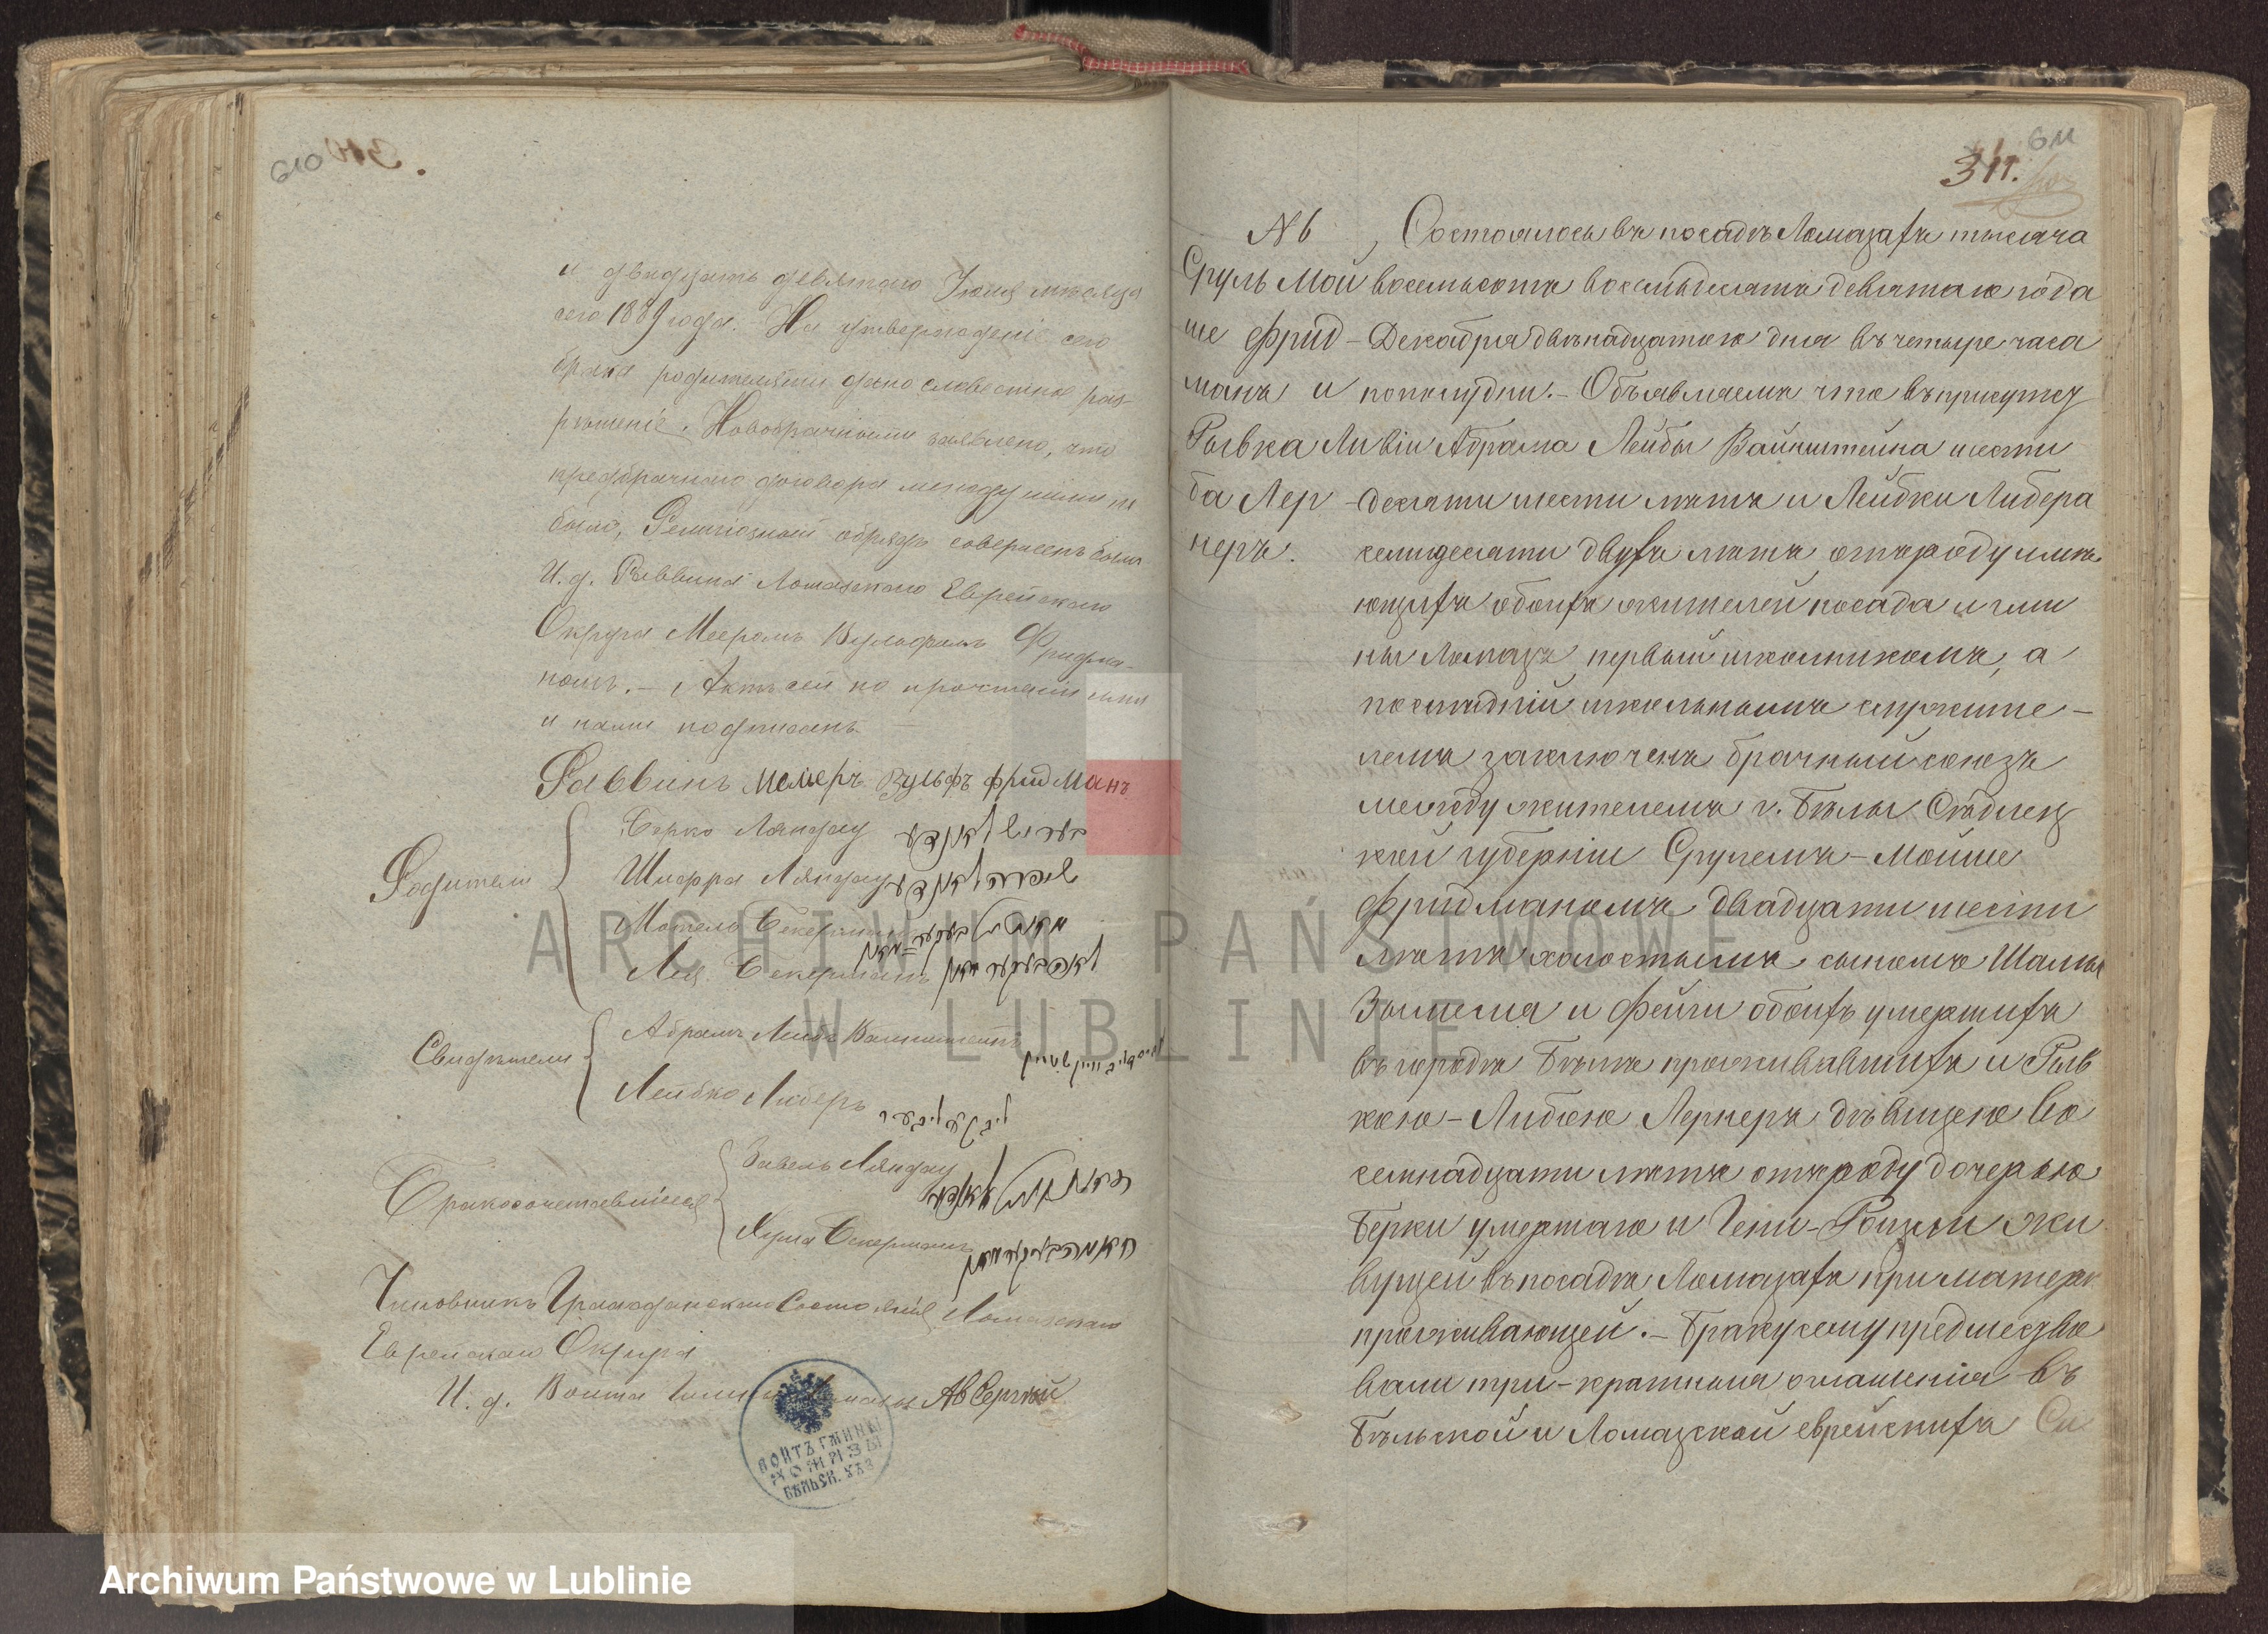 610
310.
и двадцать девятаго Іюня мѣсяца
сего 1889 года. На утвержденіе сего
брака родителями дано словесное раз-
рѣшеніе. Новобрачными заявлено, что
предбрачнаго договора между ними не
было, Религіозный обрядъ совершенъ былъ
И. д. Раввина Ломазскаго Еврейскаго
Округа Мееромъ Вульфомъ Фридма-
номъ. — Актъ сей по прочтеніи ими
и нами подписанъ. —
Раввинъ Мейеръ Вульфъ фридманъ
Родители
Берко Ляндау
Шифра Ляндау
Мотель Бекерманъ
Лея Бекерманъ
Свидѣтели
Абрамъ Лейба Вайнштейнъ
Лейбко Либеръ
Бракосочетавшіеся
Ляндау
Бекерманъ
Чиновникъ Гражданскаго Состоянія Ломазскаго
Еврейскаго Округа
И. д. Войта Гмины
ВОЙТЪ ГМИНЫ
ЛОМАЗЫ
БѢЛЬСК. УѢЗ
611
311.
N 6
Сруль Мой
ше Фрид-
манъ и
Рывка Ли
ба Лер-
неръ.
Состоялось въ посадѣ Ломазахъ тысяча
восемьсотъ восемьдесятъ девятаго года
Декабря двѣнадцатаго дня въ четыре часа
пополудни. — Объявляемъ что въ присутст
віи Абрама Лейбы Вайнштейна шести
десяти шести лѣтъ и Лейбки Либера
семидесяти двухъ лѣтъ отъ роду имѣ
ющихъ обоихъ жителей посада и гми
ны Ломазъ первый школьникомъ, а
послѣдній школьнымъ служите-
лемъ заключенъ брачный союзъ
между жителемъ г. Бѣлы Сѣдлец
кой губерніи Срулемъ-Мойше
Фридманомъ двадцати шести
лѣтъ холостымъ сыномъ Шамы
Зымеля и Фейги обоихъ умершихъ
въ городѣ Бѣлѣ проживавшихъ и Рыв
кою-Либою Лернеръ дѣвицею во
семнадцати лѣтъ отъ роду дочерью
Берки умершаго и Гени-Рошли жи
вущей въ посадѣ Ломазахъ при матери
проживающей. — Браку сему предшество
вали три-кратныя оглашенія въ
Бѣльской и Ломазской еврейскихъ Си
Archiwum Państwowe w Lublinie
ARCHIWUM PAŃSTWOWE
W LUBLINIE